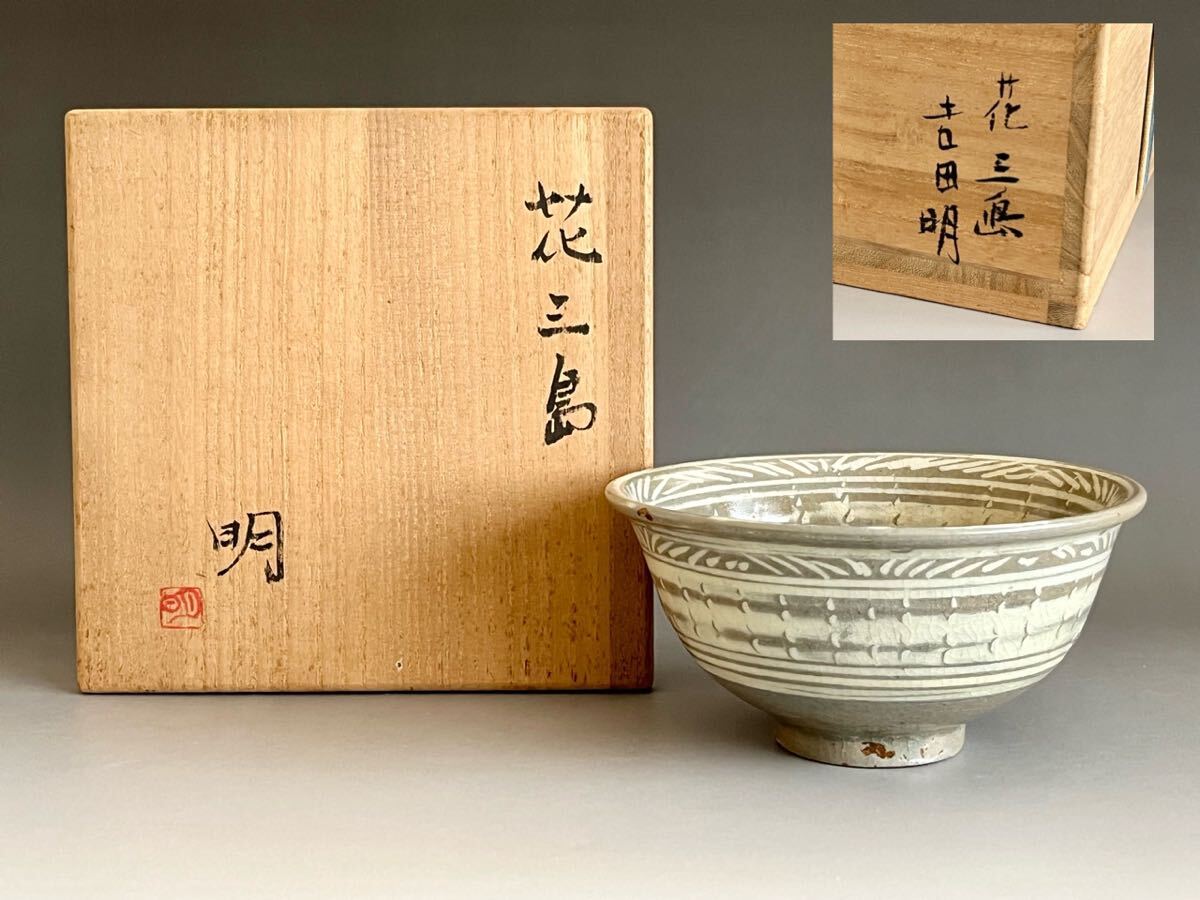 花三島
明
明
花三島
吉田明